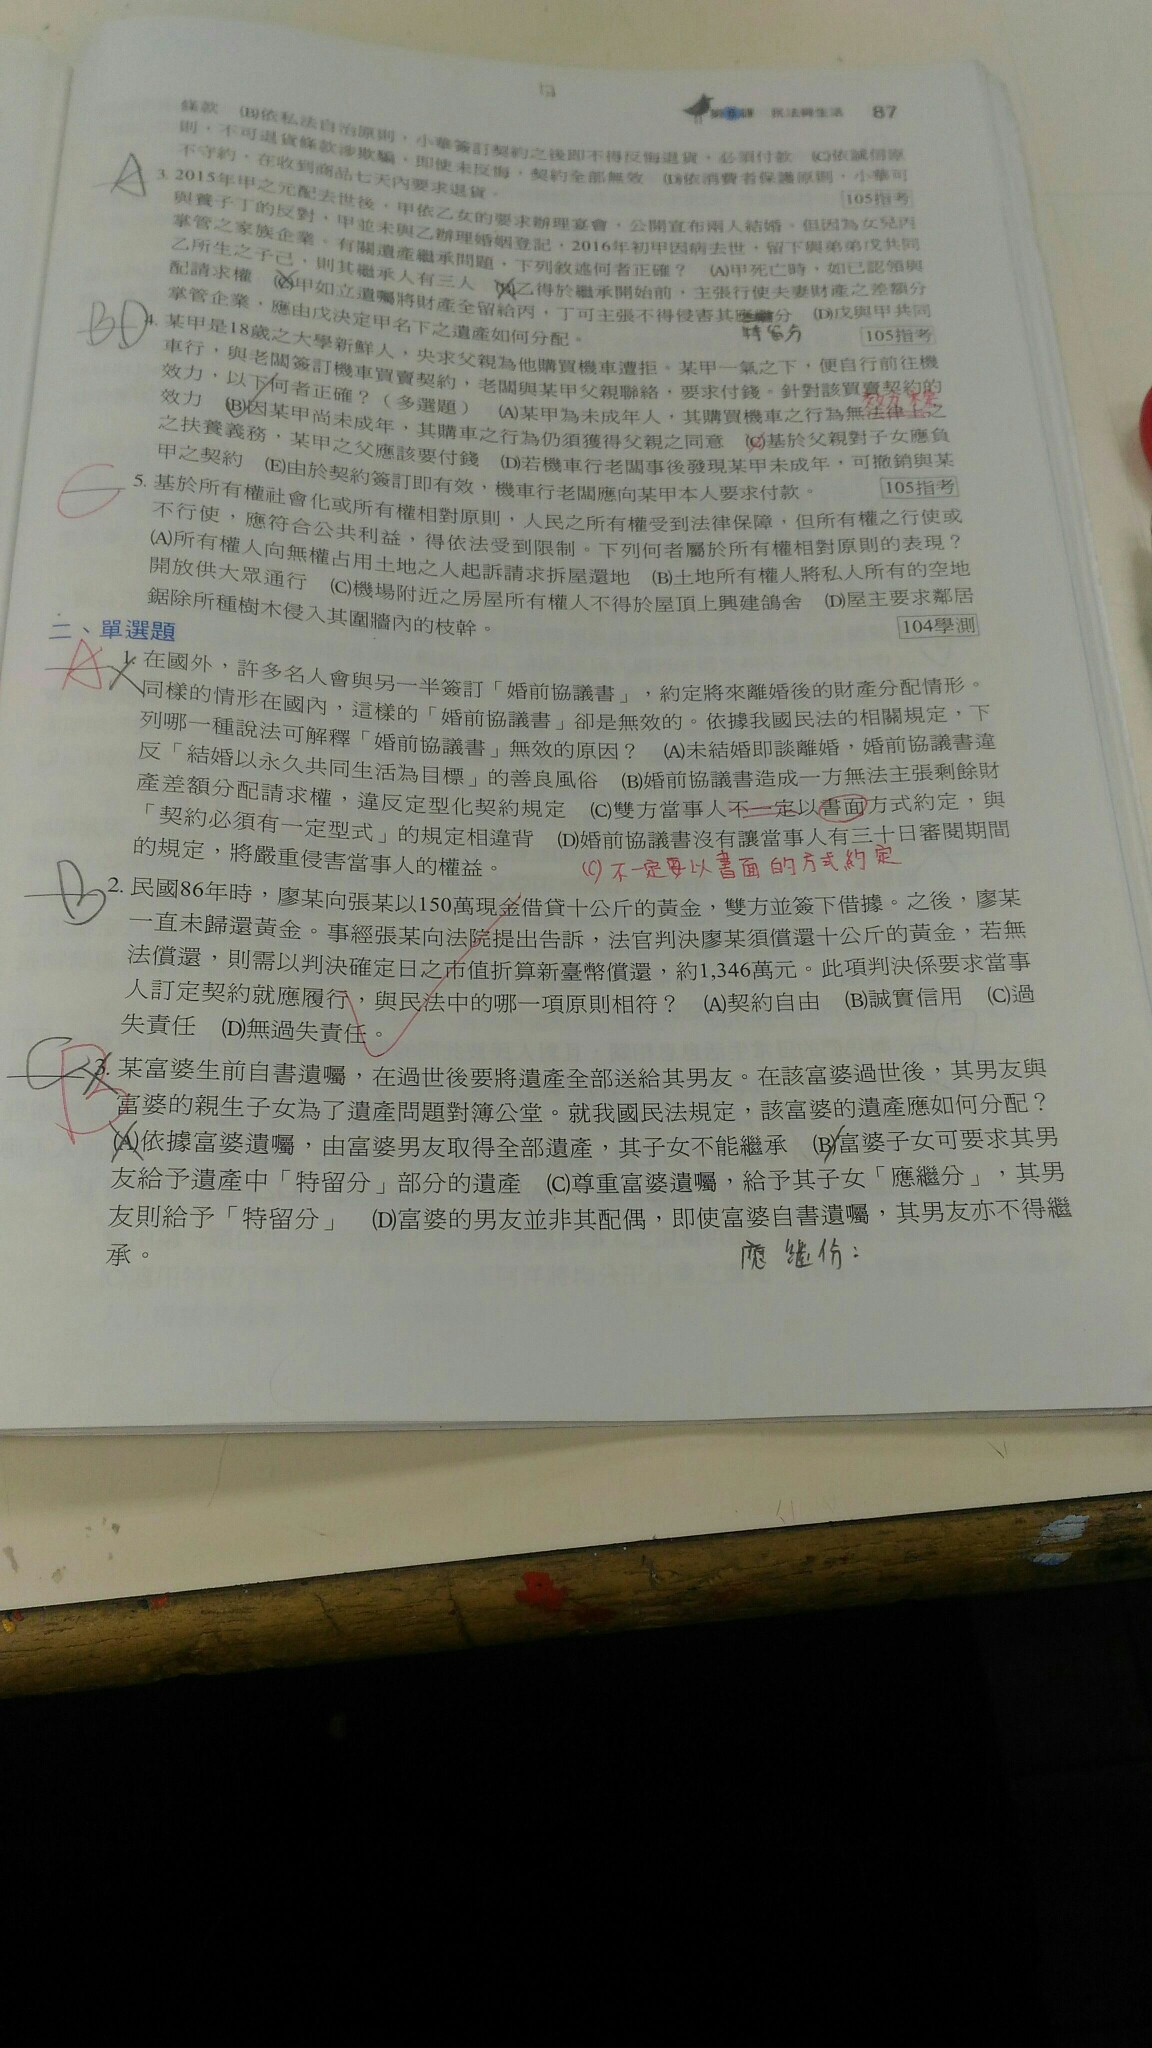 第五課 民法與生活 87
條款 (B)依私法自治原則，小華簽訂契約之後即不得反悔退貨，必須付款 (C)依誠信原
則，不可退貨條款涉欺騙，即使未反悔，契約全部無效 (D)依消費者保護原則，小華可
不守約，在收到商品七天內要求退貨。 105指考
A 3. 2015年甲之元配去世後，甲依乙女的要求辦理宴會，公開宣布兩人結婚。但因為女兒丙
與養子丁的反對，甲並未與乙辦理婚姻登記，2016年初甲因病去世，留下與弟弟戊共同
掌管之家族企業。有關遺產繼承問題，下列敘述何者正確？ (A)甲死亡時，如已認領與
乙所生之子己，則其繼承人有三人 (B)乙得於繼承開始前，主張行使夫妻財產之差額分
配請求權 (C)甲如立遺囑將財產全留給丙，丁可主張不得侵害其應繼分 (D)戊與甲共同
特留分
掌管企業，應由戊決定甲名下之遺產如何分配。 105指考
BD 4. 某甲是18歲之大學新鮮人，央求父親為他購買機車遭拒。某甲一氣之下，便自行前往機
車行，與老闆簽訂機車買賣契約，老闆與某甲父親聯絡，要求付錢。針對該買賣契約的
效力，以下何者正確？（多選題） (A)某甲為未成年人，其購買機車之行為無法律上之
效力未定
效力 (B)因某甲尚未成年，其購車之行為仍須獲得父親之同意 (C)基於父親對子女應負
之扶養義務，某甲之父應該要付錢 (D)若機車行老闆事後發現某甲未成年，可撤銷與某
甲之契約 (E)由於契約簽訂即有效，機車行老闆應向某甲本人要求付款。 105指考
C 5. 基於所有權社會化或所有權相對原則，人民之所有權受到法律保障，但所有權之行使或
不行使，應符合公共利益，得依法受到限制。下列何者屬於所有權相對原則的表現？
(A)所有權人向無權占用土地之人起訴請求拆屋還地 (B)土地所有權人將私人所有的空地
開放供大眾通行 (C)機場附近之房屋所有權人不得於屋頂上興建鴿舍 (D)屋主要求鄰居
鋸除所種樹木侵入其圍牆內的枝幹。 104學測
二、單選題
A 1. 在國外，許多名人會與另一半簽訂「婚前協議書」，約定將來離婚後的財產分配情形。
同樣的情形在國內，這樣的「婚前協議書」卻是無效的。依據我國民法的相關規定，下
列哪一種說法可解釋「婚前協議書」無效的原因？ (A)未結婚即談離婚，婚前協議書違
反「結婚以永久共同生活為目標」的善良風俗 (B)婚前協議書造成一方無法主張剩餘財
產差額分配請求權，違反定型化契約規定 (C)雙方當事人不一定以書面方式約定，與
「契約必須有一定型式」的規定相違背 (D)婚前協議書沒有讓當事人有三十日審閱期間
的規定，將嚴重侵害當事人的權益。
(C)不一定要以書面的方式約定
B 2. 民國86年時，廖某向張某以150萬現金借貸十公斤的黃金，雙方並簽下借據。之後，廖某
一直未歸還黃金。事經張某向法院提出告訴，法官判決廖某須償還十公斤的黃金，若無
法償還，則需以判決確定日之市值折算新臺幣償還，約1,346萬元。此項判決係要求當事
人訂定契約就應履行，與民法中的哪一項原則相符？ (A)契約自由 (B)誠實信用 (C)過
失責任 (D)無過失責任。
C B 3. 某富婆生前自書遺囑，在過世後要將遺產全部送給其男友。在該富婆過世後，其男友與
富婆的親生子女為了遺產問題對簿公堂。就我國民法規定，該富婆的遺產應如何分配？
(A)依據富婆遺囑，由富婆男友取得全部遺產，其子女不能繼承 (B)富婆子女可要求其男
友給予遺產中「特留分」部分的遺產 (C)尊重富婆遺囑，給予其子女「應繼分」，其男
友則給予「特留分」 (D)富婆的男友並非其配偶，即使富婆自書遺囑，其男友亦不得繼
承。
應繼份：